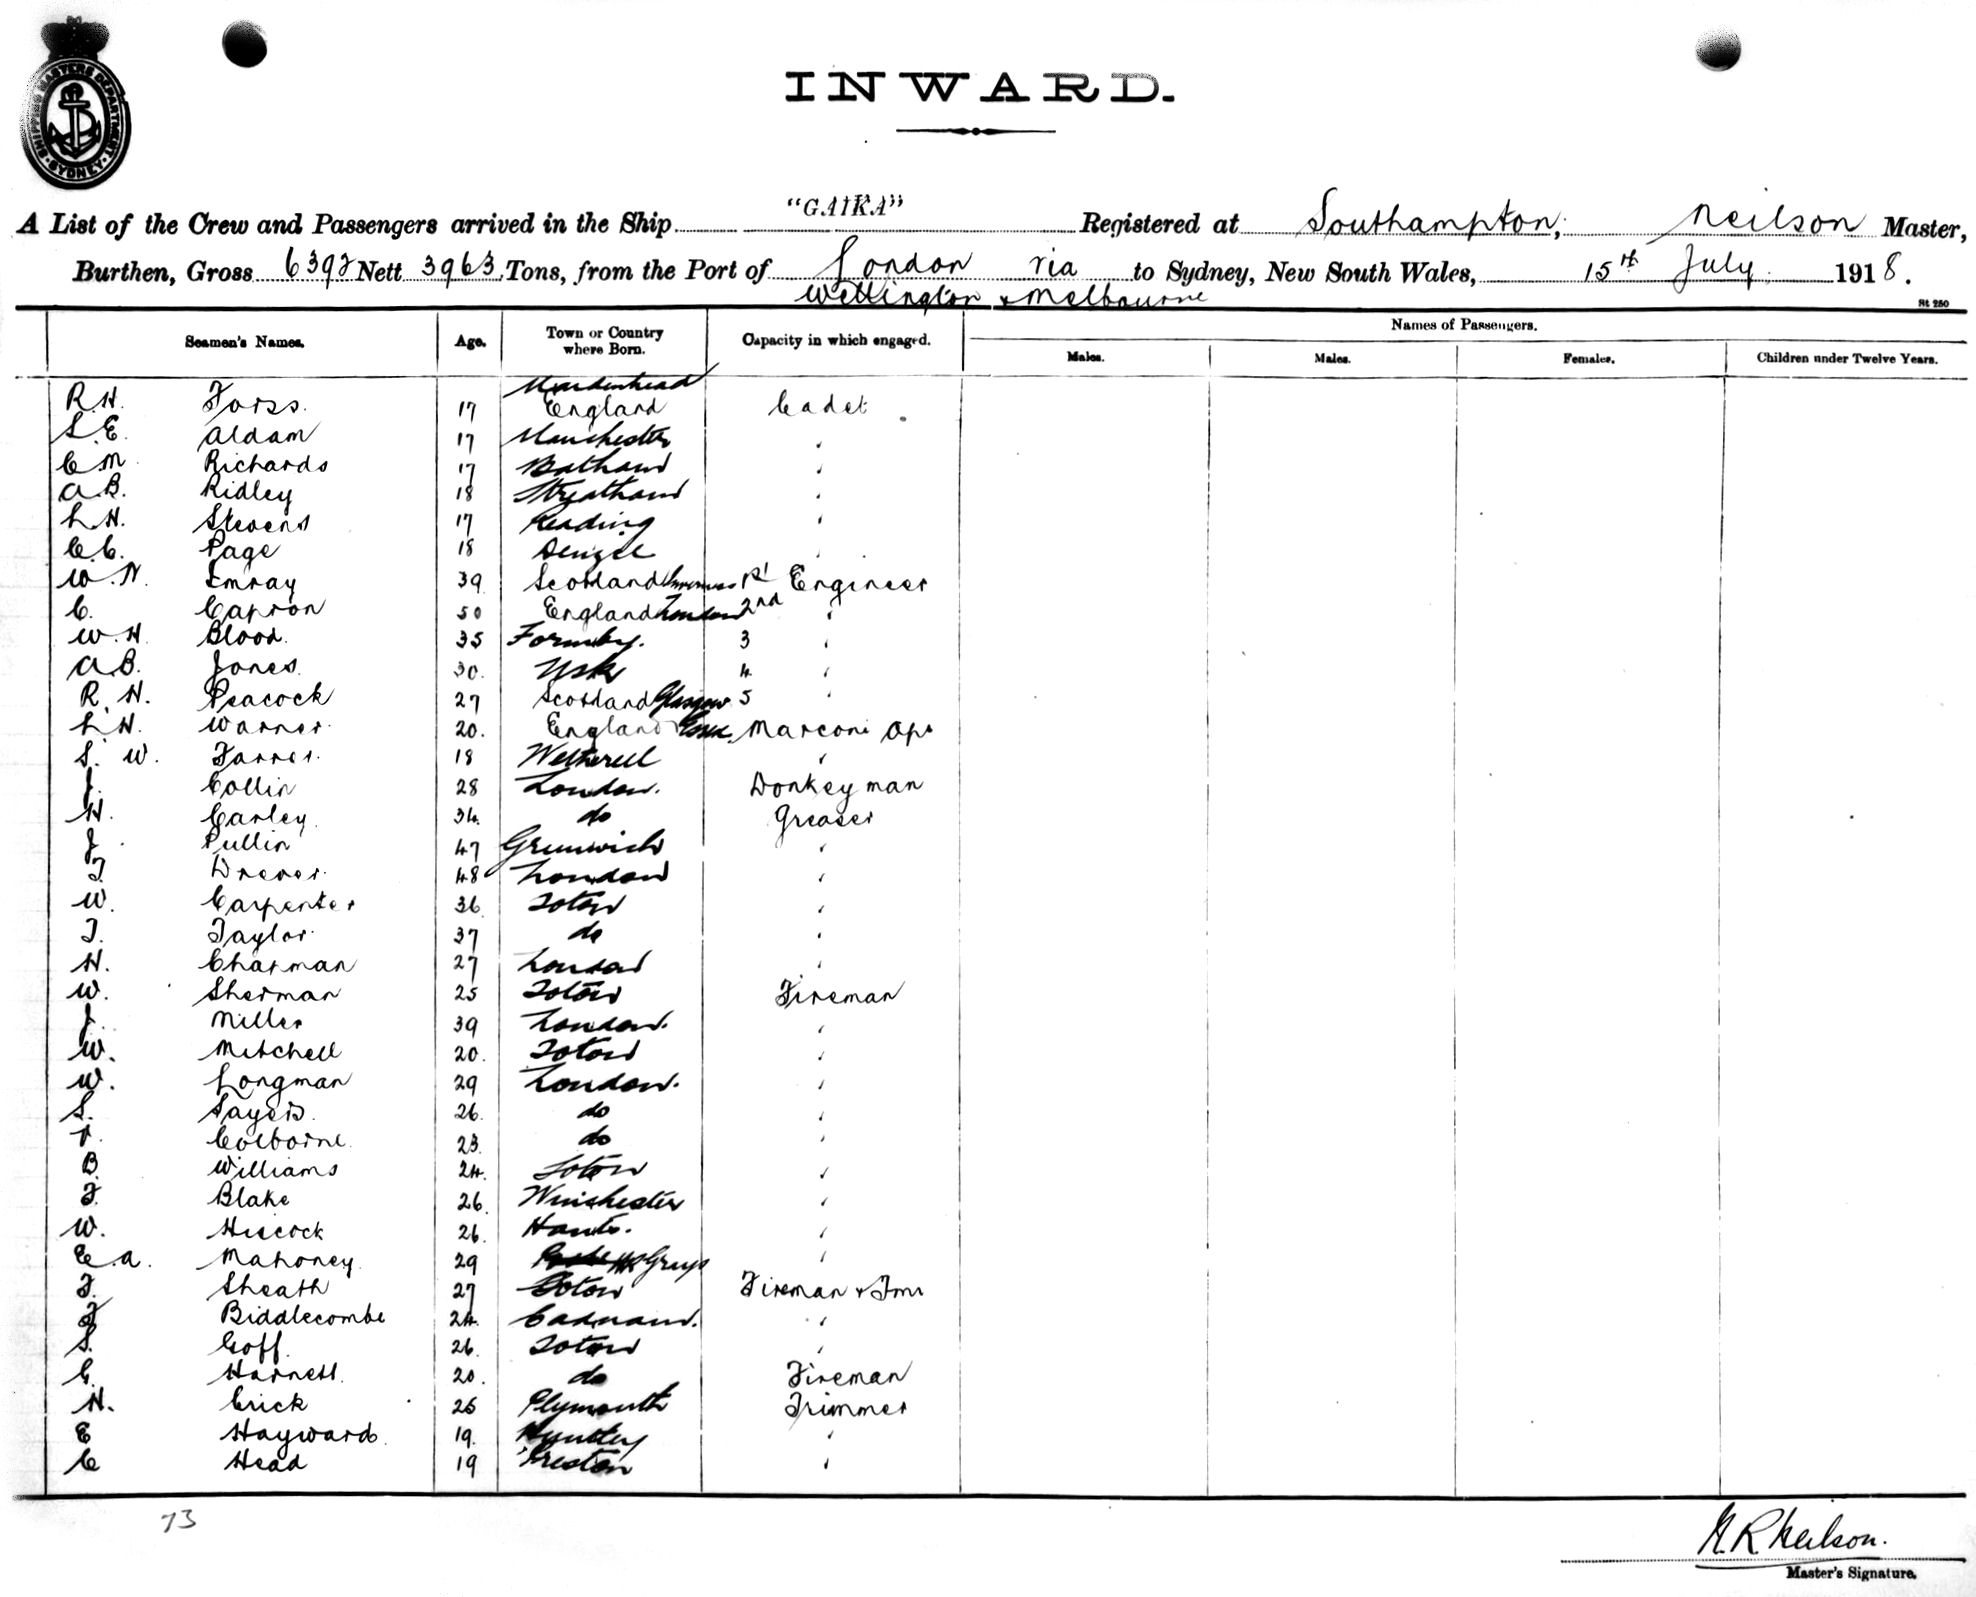 SHIPPING MASTERS DEPARTMENT · SYDNEY ·
INWARD.
A List of the Crew and Passengers arrived in the Ship "GAIKA" Registered at Southampton, Neilson Master,
Burthen, Gross 6392 Nett 3963 Tons, from the Port of London via to Sydney, New South Wales, 15th July 1918.
Wellington & Melbourne
St 250
Seamen's Names. Age. Town or Country where Born. Capacity in which engaged. Names of Passengers.
Males. Males. Females. Children under Twelve Years.
Maidenhead
R.H. Forss. 17 England Cadet
S.E. Aldam 17 Manchester "
C.M. Richards 17 "
A.B. Ridley 18 Streatham "
L.H. Stevens 17 Reading "
C.C. Page 18 "
W.N. Imray 39 Scotland Inverness 1st Engineer
C. Capron 50 England London 2nd "
W.H. Blood. 35 Formby. 3 "
A.B. Jones. 30. Usk 4 "
R.H. Peacock 27 Scotland Glasgow 5 "
L.H. Warner. 20. England Essex Marconi Opr
S.W. Farrer. 18 Wetherell "
J. Collin 28 London. Donkeyman
H. Carley. 34. do Greaser
J. Pullin 47 Greenwich "
T. Drever. 48 London "
W. Carpenter 36 Soton "
T. Taylor. 37 do "
H. Chapman 27 London "
W. Sherman 25 Soton Fireman
J. Miller 39 London. "
W. Mitchell 20. Soton "
W. Longman 29 London. "
S. Sayers. 26. do "
Colborne. 23. do "
B. Williams 24. Soton "
F. Blake 26. Winchester "
W. Hiscock 26. Hants. "
E.A. Mahoney 29 Grays "
F. Sheath 27 Soton Fireman & Tmr
F. Biddlecombe 24. Cadnam. "
S. Goff. 26. Soton "
C. Harnett. 20. do Fireman
H. Crick 25 Plymouth Trimmer
E Hayward. 19. "
C Head 19 Preston "
73
H.R. Neilson.
Master's Signature.